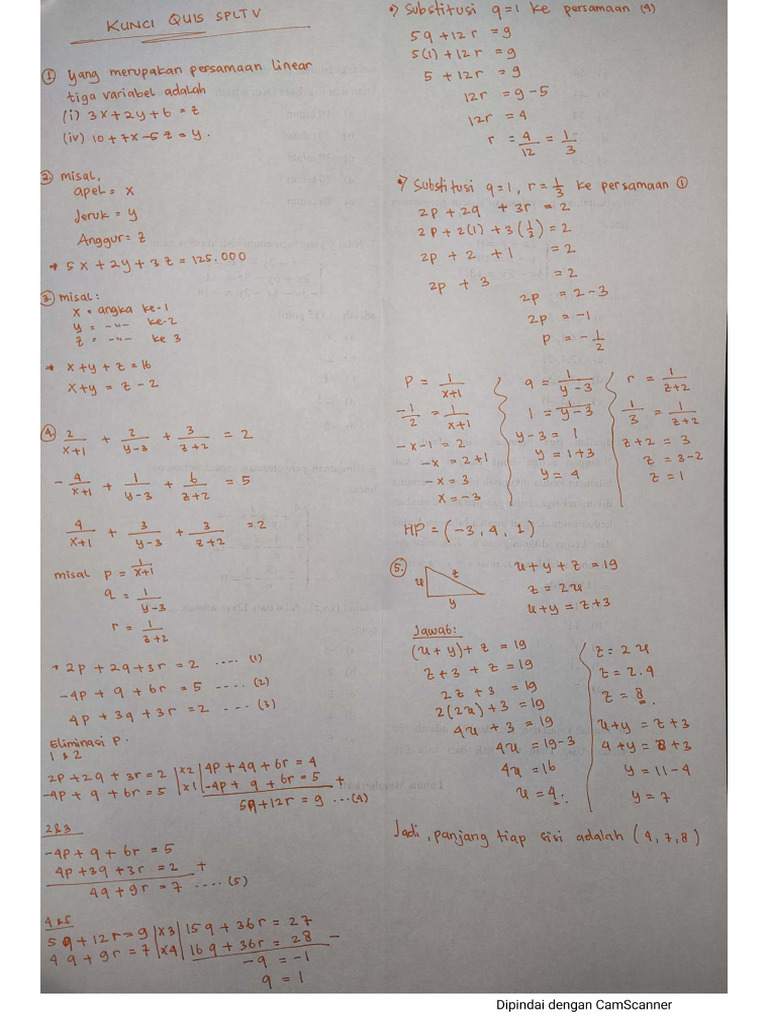 KUNCI QUIS SPLTV
① yang merupakan persamaan linear
tiga variabel adalah
(i) 3x + 2y + 6 = z
(iv) 10 + 7x - 5z = y.
② misal,
apel = x
Jeruk = y
Anggur = z
→ 5x + 2y + 3z = 125.000
③ misal :
x = angka ke-1
y = -"- ke-2
z = -"- ke 3
→ x + y + z = 16
x + y = z - 2
④ 2/(x+1) + 2/(y-3) + 3/(z+2) = 2
- 4/(x+1) + 1/(y-3) + 6/(z+2) = 5
4/(x+1) + 3/(y-3) + 3/(z+2) = 2
misal p = 1/(x+1)
q = 1/(y-3)
r = 1/(3+2)
→ 2p + 2q + 3r = 2 .... (1)
-4p + q + 6r = 5 .... (2)
4p + 3q + 3r = 2 .... (3)
Eliminasi p.
1 & 2
2p + 2q + 3r = 2 |x2| 4p + 4q + 6r = 4
-4p + q + 6r = 5 |x1| -4p + q + 6r = 5 +
5q + 12r = 9 ... (4)
2&3
-4p + q + 6r = 5
4p + 3q + 3r = 2 +
4q + 9r = 7 .... (5)
4&5
5q + 12r = 9 |x3| 15q + 36r = 27
4q + 9r = 7 |x4| 16q + 36r = 28 -
-q = -1
q = 1
→ Substitusi q = 1 ke persamaan (4)
5q + 12r = 9
5(1) + 12r = 9
5 + 12r = 9
12r = 9 - 5
12r = 4
r = 4/12 = 1/3
→ Substitusi q = 1, r = 1/3 ke persamaan ①
2p + 2q + 3r = 2
2p + 2(1) + 3(1/3) = 2
2p + 2 + 1 = 2
2p + 3 = 2
2p = 2 - 3
2p = -1
p = -1/2
p = 1/(x+1)
-1/2 = 1/(x+1)
-x-1 = 2
-x = 2+1
-x = 3
x = -3
q = 1/(y-3)
1 = 1/(y-3)
y-3 = 1
y = 1+3
y = 4
r = 1/(z+2)
1/3 = 1/(z+2)
z+2 = 3
z = 3-2
z = 1
HP = (-3, 4, 1)
⑤.
u
z
y
u + y + z = 19
z = 2u
u + y = z + 3
Jawab:
(u + y) + z = 19
z + 3 + z = 19
2z + 3 = 19
2(2u) + 3 = 19
4u + 3 = 19
4u = 19 - 3
4u = 16
u = 4.
z = 2u
z = 2.4
z = 8.
u + y = z + 3
4 + y = 8 + 3
y = 11 - 4
y = 7
Jadi, panjang tiap sisi adalah (4, 7, 8)
Dipindai dengan CamScanner